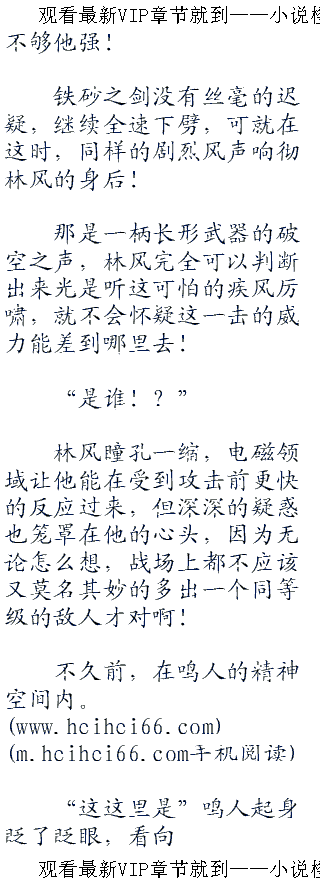 观看最新VIP章节就到——小说楼
不够他强！
铁砂之剑没有丝毫的迟
疑，继续全速下劈，可就在
这时，同样的剧烈风声响彻
林风的身后！
那是一柄长形武器的破
空之声，林风完全可以判断
出来光是听这可怕的疾风厉
啸，就不会怀疑这一击的威
力能差到哪里去！
“是谁！？”
林风瞳孔一缩，电磁领
域让他能在受到攻击前更快
的反应过来，但深深的疑惑
也笼罩在他的心头，因为无
论怎么想，战场上都不应该
又莫名其妙的多出一个同等
级的敌人才对啊！
不久前，在鸣人的精神
空间内。
(www.hcihci66.com)
(m.hcihci66.com手机阅读)
“这这里是”鸣人起身
眨了眨眼，看向
观看最新VIP章节就到——小说